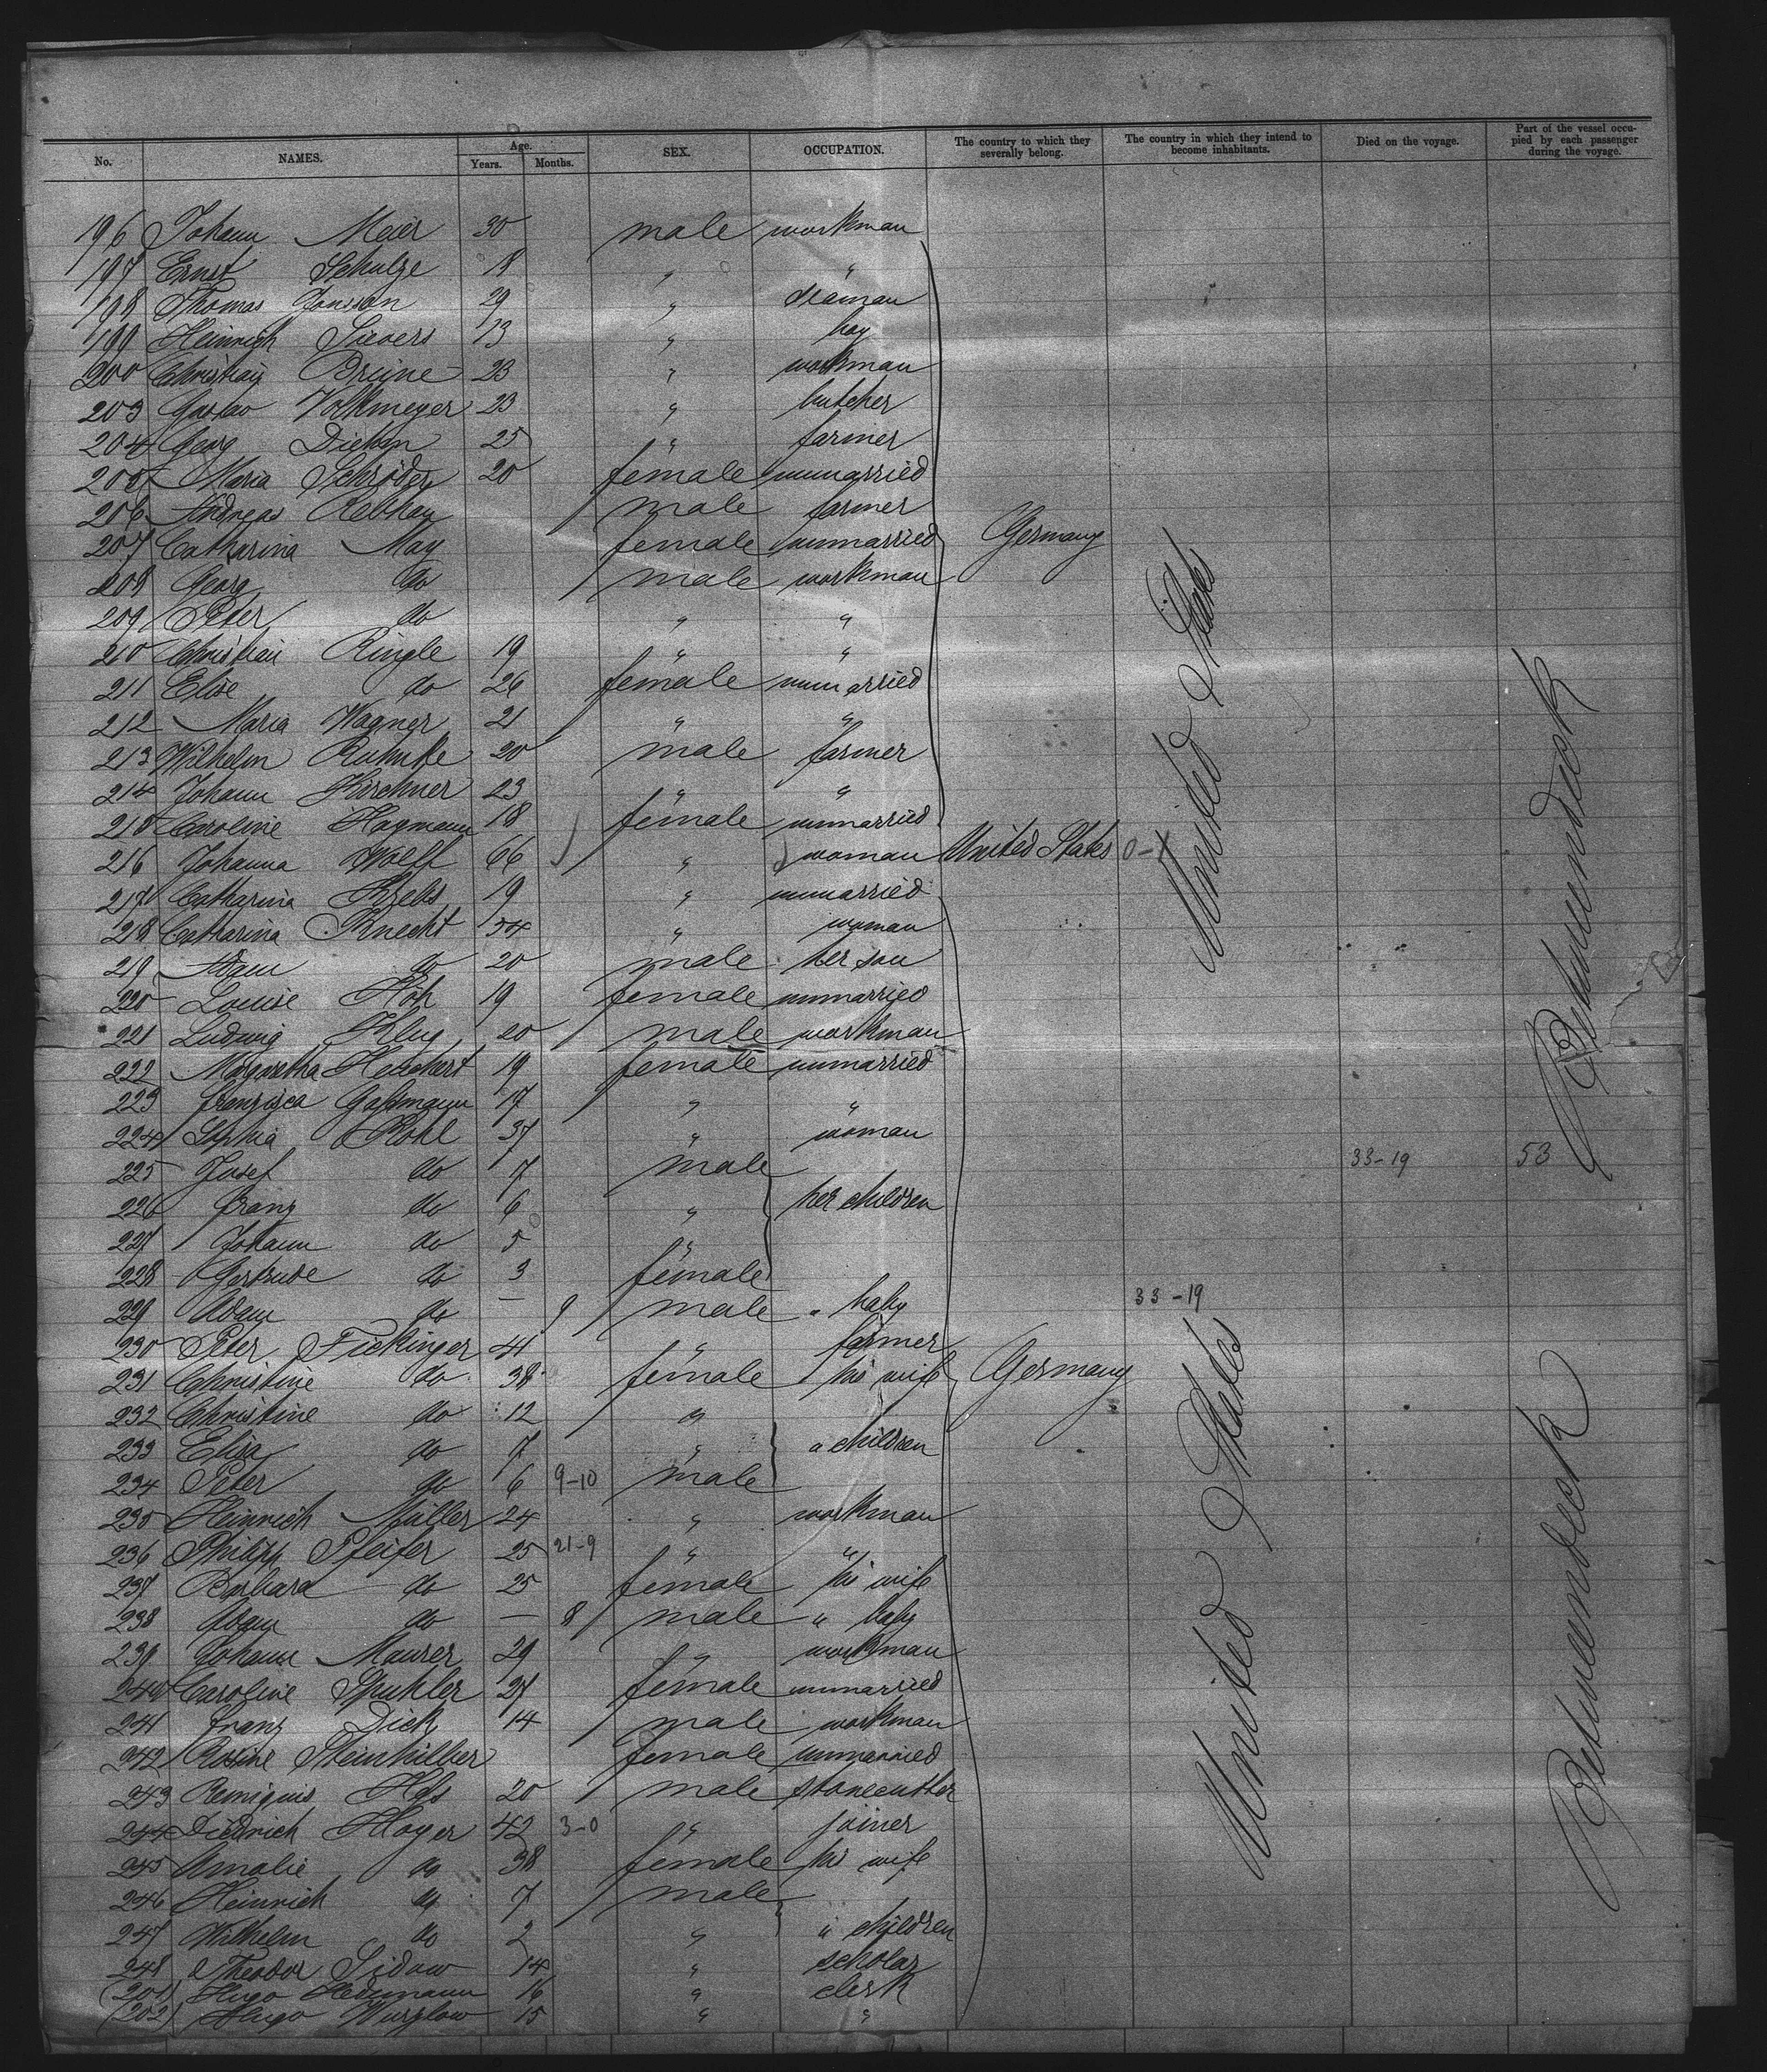 No. NAMES. Age. Years. Months. SEX. OCCUPATION. The country to which they severally belong. The country in which they intend to become inhabitants. Died on the voyage. Part of the vessel occupied by each passenger during the voyage.
196 Johann Meier 30 male workman
197 Ernst Schulze 18 " "
198 Thomas Jansson 29 " seaman
199 Heinrich Sievers 13 " boy
200 Christian Brüne 23 " workman
203 Gustav Volkmeyer 23 " butcher
204 Georg Diehm 25 " farmer
205 Maria Schröder 20 female unmarried
206 Andreas Rebhan male farmer
207 Catharina May female unmarried Germany
208 Georg do male workman
209 Peter do " "
210 Christian Ringle 19 " "
211 Elise do 26 female unmarried
212 Maria Wagner 21 " "
213 Wilhelm Ruhnke 20 male farmer
214 Johann Kirchner 23 " "
215 Caroline Hagmann 18 female unmarried
216 Johanna Wolff 66 " woman United States 0-1 United States
217 Catharina Krebs 19 " unmarried
218 Catharina Knecht 54 " woman
219 Adam do 20 male her son
220 Louise Höh 19 female unmarried
221 Ludwig Klug 20 male workman Between deck
222 Margaretha Herchert 19 female unmarried
223 Franziska Gaßmann 17 " "
224 Sophia Kohl 37 " woman
225 Josef do 7 male 33-19 53
226 Franz do 6 " her children
227 Johann do 5 "
228 Gertrude do 3 female
229 Adam do — 9 male " baby 33-19
230 Peter Fickinger 41 " farmer
231 Christine do 38 female his wife Germany
232 Christine do 12 "
233 Elisa do 7 " " children
234 Peter do 6 9-10 male
235 Heinrich Müller 24 " workman
236 Philipp Pfeifer 25 21-9 " "
237 Barbara do 25 female his wife
238 Adam do — 8 male " baby United States
239 Johann Maurer 29 " workman Between deck
240 Caroline Spuhler 27 female unmarried
241 Franz Dick 14 male workman
242 Rosine Steinhilber female unmarried
243 Remigius Hels 20 male stonecutter
244 Diedrich Hoyer 42 3-0 " joiner
245 Amalie do 38 female his wife
246 Heinrich do 7 male
247 Wilhelm do 2 " " children
248 Theodor Sidow 14 " scholar
(201) Hugo Hedemann 16 " clerk
(202) Hugo Wurzlow 15 " "